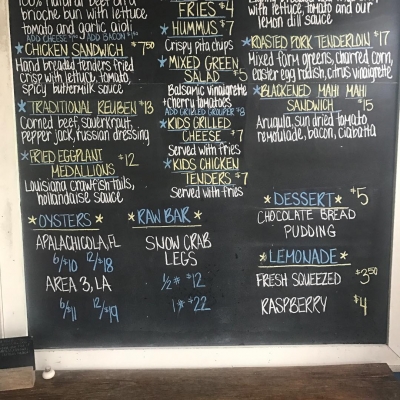 100% natural beef on a
brioche bun with lettuce
tomato and garlic aioli
ADD CHEESE ADD BACON
*CHICKEN SANDWICH $7.50
Hand breaded tenders fried
crisp with lettuce, tomato,
spicy buttermilk sauce
*TRADITIONAL REUBEN $13
Corned beef, sauerkraut,
pepper jack, russian dressing
*FRIED EGGPLANT
MEDALLIONS $12
Louisiana crawfish tails,
hollandaise sauce
*OYSTERS*
APALACHICOLA, FL
6/$10 12/$18
AREA 3, LA
6/$11 12/$19
FRIES $4
*HUMMUS $7
Crispy pita chips
*MIXED GREEN
SALAD $5
Balsamic vinaigrette
+cherry tomatoes
ADD GRILLED GROUPER $8
*KIDS GRILLED
CHEESE $7
Served with fries
*KIDS CHICKEN
TENDERS $7
Served with fries
*RAW BAR*
SNOW CRAB
LEGS
1/2# $12
1# $22
with lettuce, tomato and our
lemon dill sauce
*ROASTED PORK TENDERLOIN $17
Mixed farm greens, charred corn,
easter egg radish, citrus vinaigrette
*BLACKENED MAHI MAHI
SANDWICH $15
Arugula, sun dried tomato,
remoulade, bacon, ciabatta
*DESSERT* $5
CHOCOLATE BREAD
PUDDING
*LEMONADE*
FRESH SQUEEZED $3.50
RASPBERRY $4